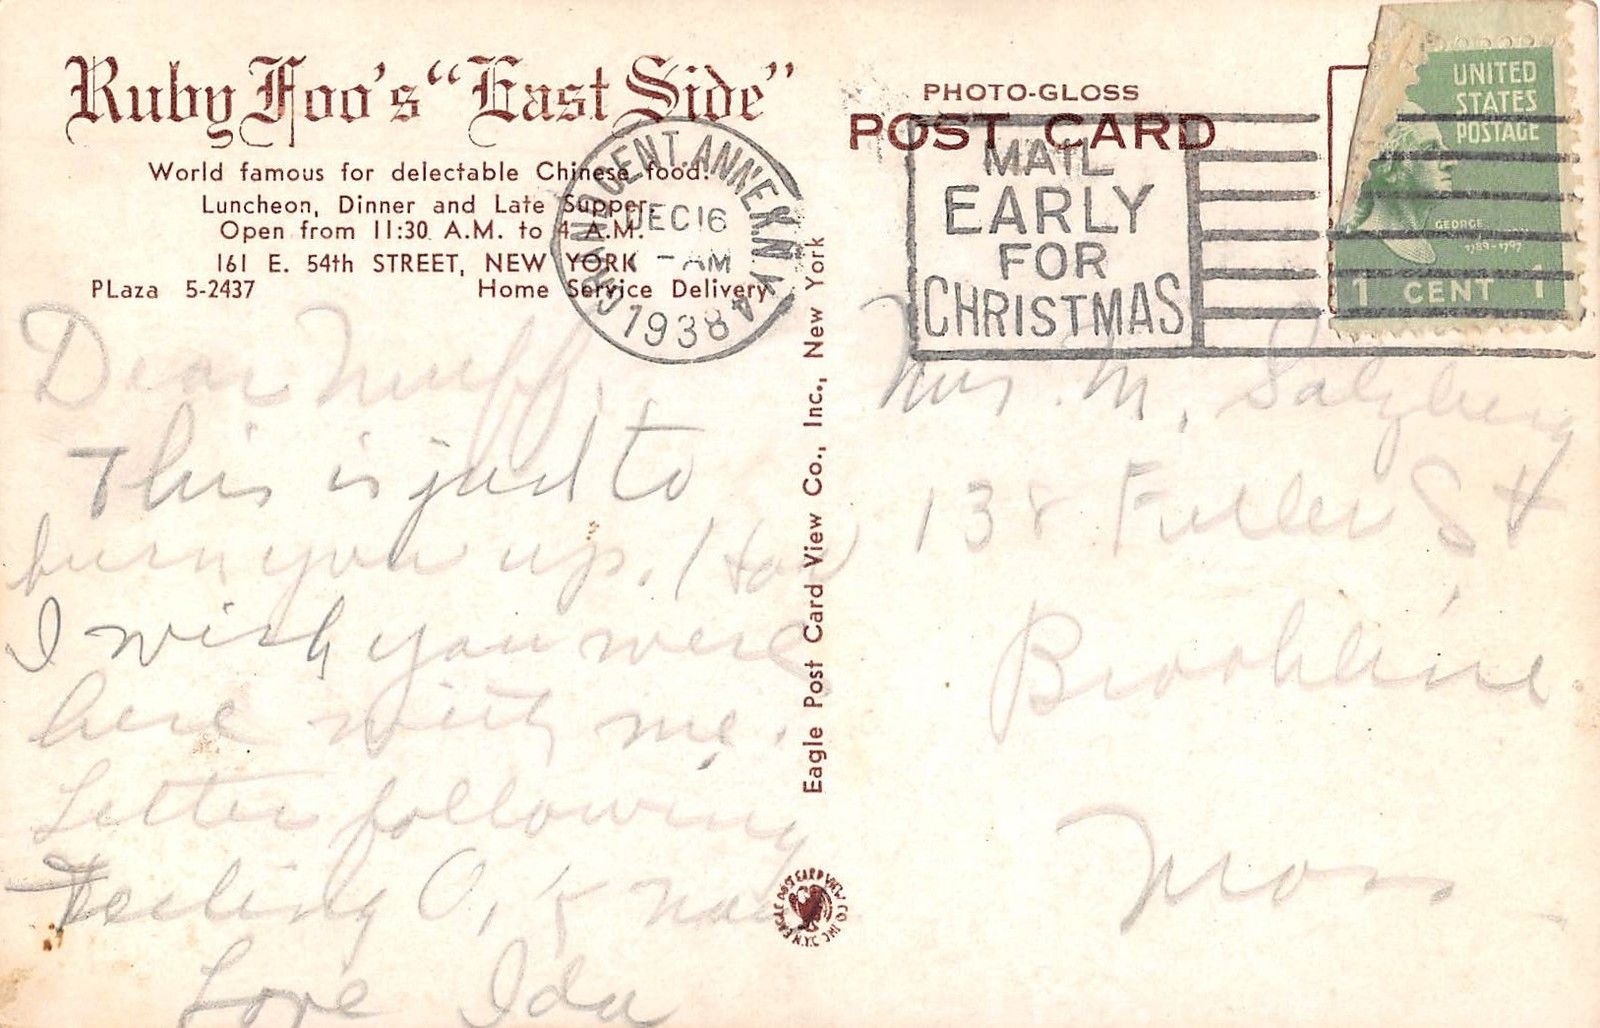 Ruby Foo's "East Side"
World famous for delectable Chinese food.
Luncheon, Dinner and Late Supper
Open from 11:30 A.M. to 4 A.M.
161 E. 54th STREET, NEW YORK
PLaza 5-2437 Home Service Delivery
GRAND CENT. ANNEX N.Y.
DEC 16
- AM
1938
Dear Muff,
This is just to
burn you up. How
I wish you were
here with me.
Letter following
Feeling O.K now
Love Ida
Eagle Post Card View Co., Inc., New York
EAGLE POST CARD VIEW CO. INC. N.Y.
PHOTO-GLOSS
POST CARD
MAIL
EARLY
FOR
CHRISTMAS
UNITED
STATES
POSTAGE
GEORGE
1789-1797
1 CENT 1
Mrs. M. Salzberg
138 Fuller St
Brookline
Mass